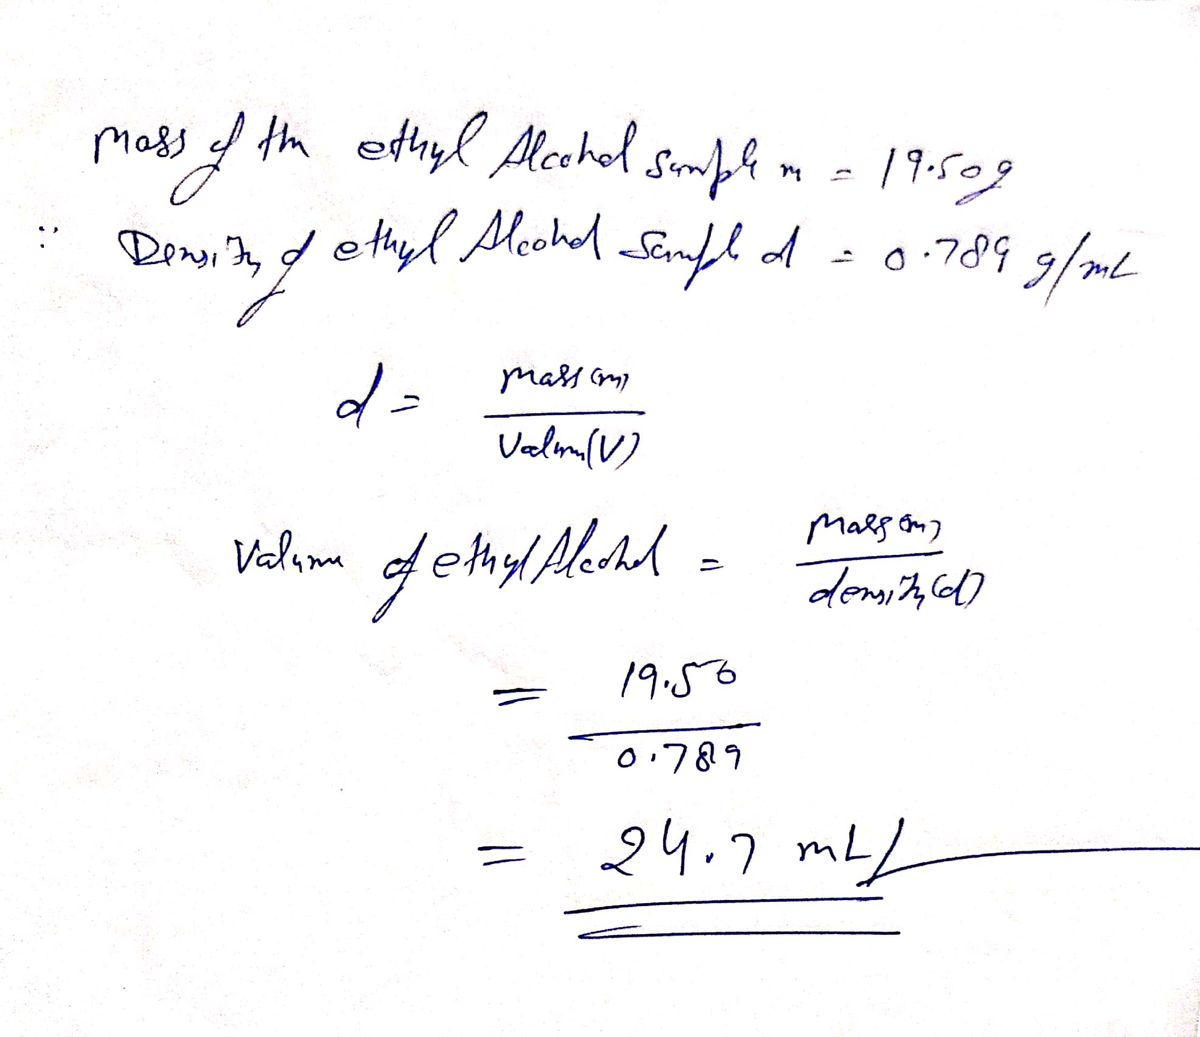 Mass of the ethyl Alcohol sample m = 19.50g
∵ Density of ethyl Alcohol sample d = 0.789 g/mL
d = mass(m)
Volume(V)
Volume of ethyl Alcohol = Mass(m)
density(d)
= 19.50
0.789
= 24.7 mL